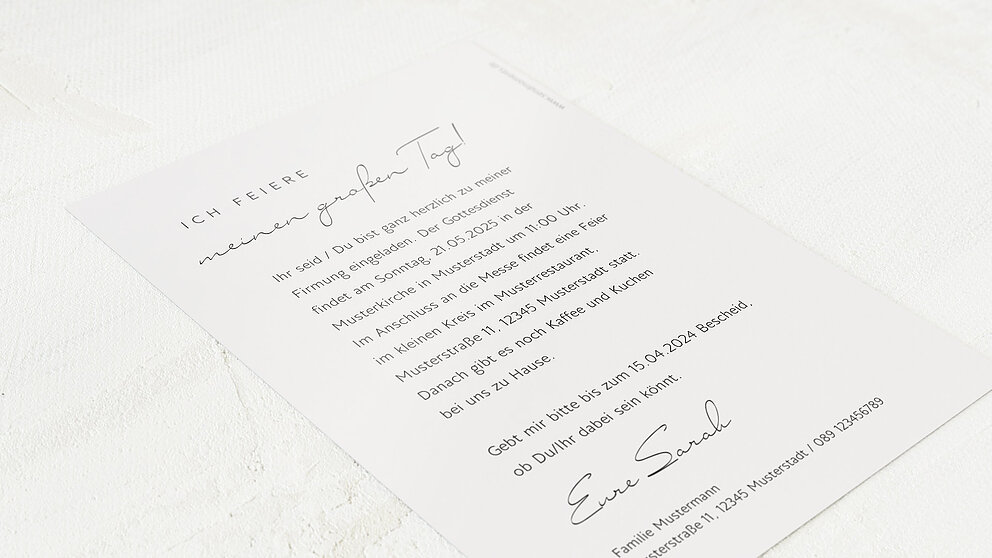 ICH FEIERE
meinen großen Tag!
Ihr seid / Du bist ganz herzlich zu meiner
Firmung eingeladen. Der Gottesdienst
findet am Sonntag, 21.05.2025 in der
Musterkirche in Musterstadt um 11.00 Uhr.
Im Anschluss an die Messe findet eine Feier
im kleinen Kreis im Musterrestaurant,
Musterstraße 11, 12345 Musterstadt statt.
Danach gibt es noch Kaffee und Kuchen
bei uns zu Hause.
Gebt mir bitte bis zum 15.04.2024 Bescheid,
ob Du/Ihr dabei sein könnt.
Eure Sarah
Familie Mustermann
11, 12345 Musterstadt / 089 123456789